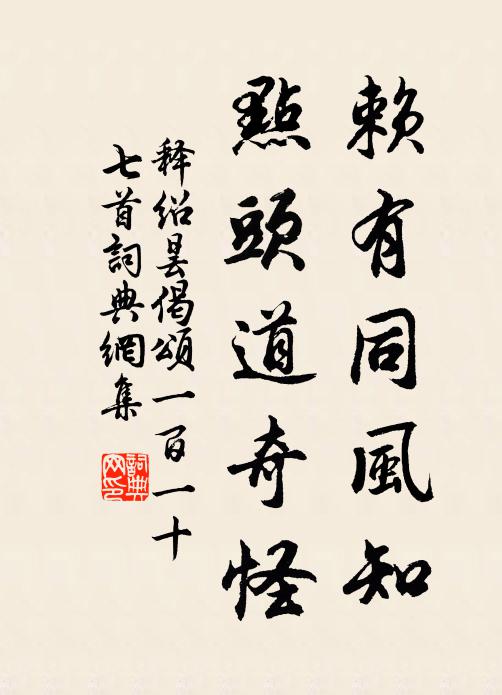 賴有同風知
點頭道奇怪
釋紹曇偈頌一百一十
七首詞典網集
詞典網印